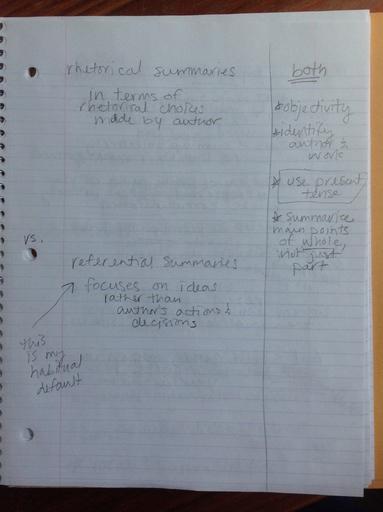 rhetorical summaries
in terms of
rhetorical choices
made by author
vs.
referential summaries
focuses on ideas
rather than
author's actions &
decisions
this
is my
habitual
default
both
* objectivity
* identify
author &
work
* use present
tense
* summarize
main points
of whole,
not just
part